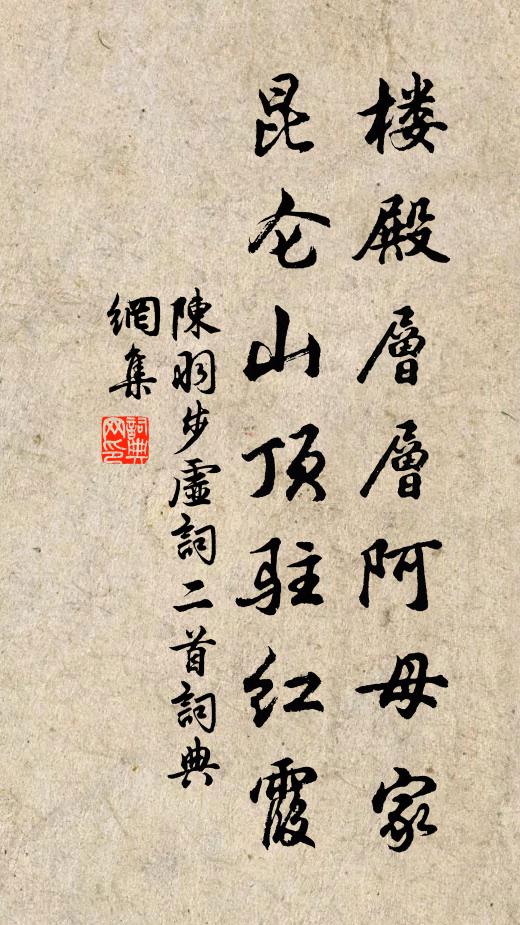 楼殿層層阿母家
昆仑山顶驻红霞
陳羽步虛詞二首詞典
網集
詞典
网印